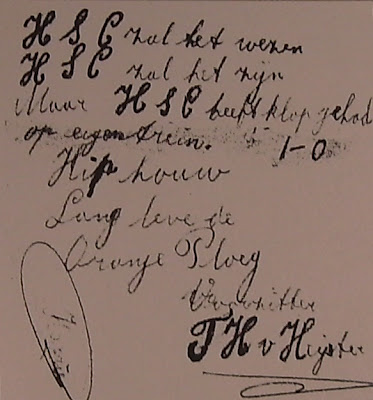 H S C zal het wezen
H S C zal het zijn
Maar H S C heeft klop gehad
op eigen trein. 1-0
Hip houw
Lang leve de
Oranje Ploeg
Voorzitter
T H v Heyster